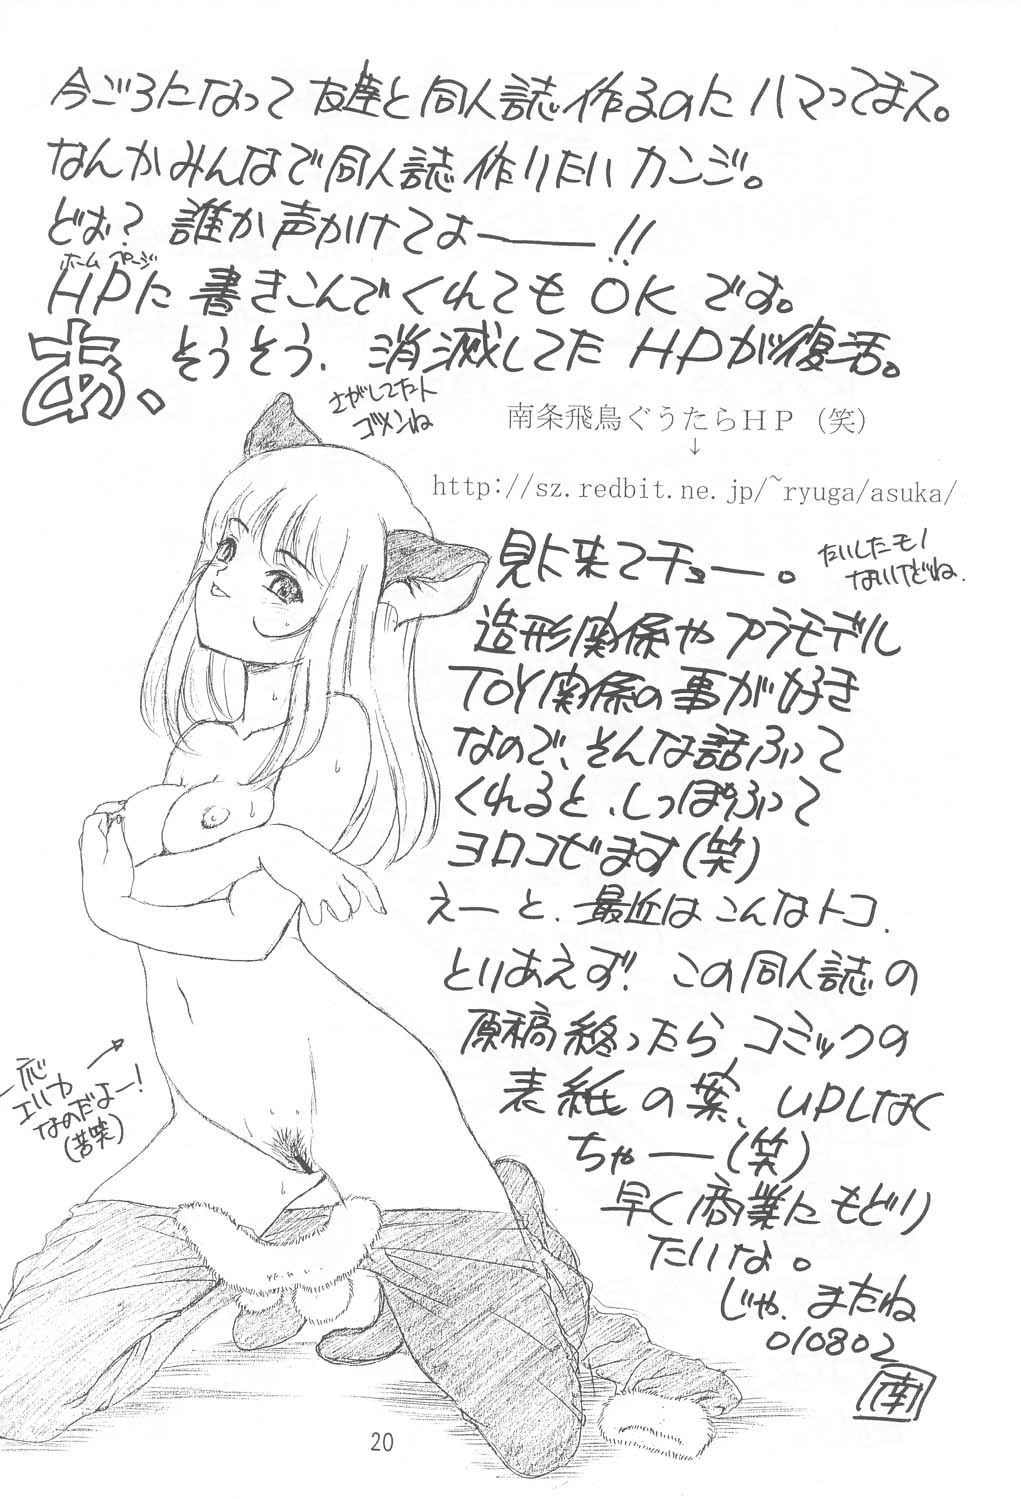 今ごろになって友達と同人誌作るのにハマってます。
なんかみんなで同人誌作りたいカンジ。
どぉ？誰か声かけてよーー!!
ホームページ
HPに書きこんでくれてもOKです。
あ、そうそう、消滅してたHPが復活。
さがしてた人
ゴメンね
南条飛鳥ぐうたらＨＰ（笑）
↓
http://sz.redbit.ne.jp/~ryuga/asuka/
見に来てチョー。
たいしたモノ
ないけどね.
造形関係やプラモデル
TOY関係の事が好き
なので、そんな話ふって
くれると、しっぽふって
ヨロコビます(笑)
えーと、最近はこんなトコ.
とりあえず!この同人誌の
原稿終ったら、コミックの
表紙の案、UPしなく
ちゃー(笑)
早く商業にもどり
たいな。
じゃ、またね
010802
南
一応
エリカ
なのだよー!
(苦笑)
20